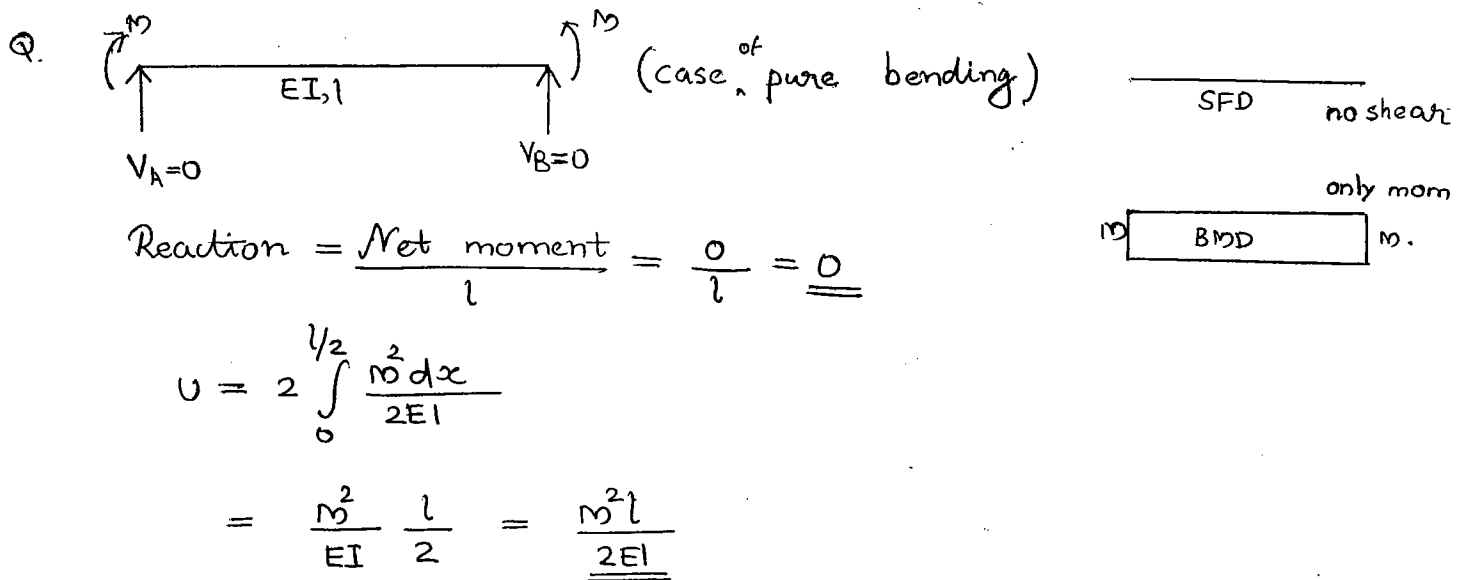 Q. M M (case of pure bending)
EI, l
V_A=0 V_B=0
SFD no shear
only mom
M BMD M.
Reaction = Net moment / l = 0 / l = 0
U = 2 ∫_0^{l/2} M² dx / 2EI
= M² / EI l / 2 = M² l / 2EI